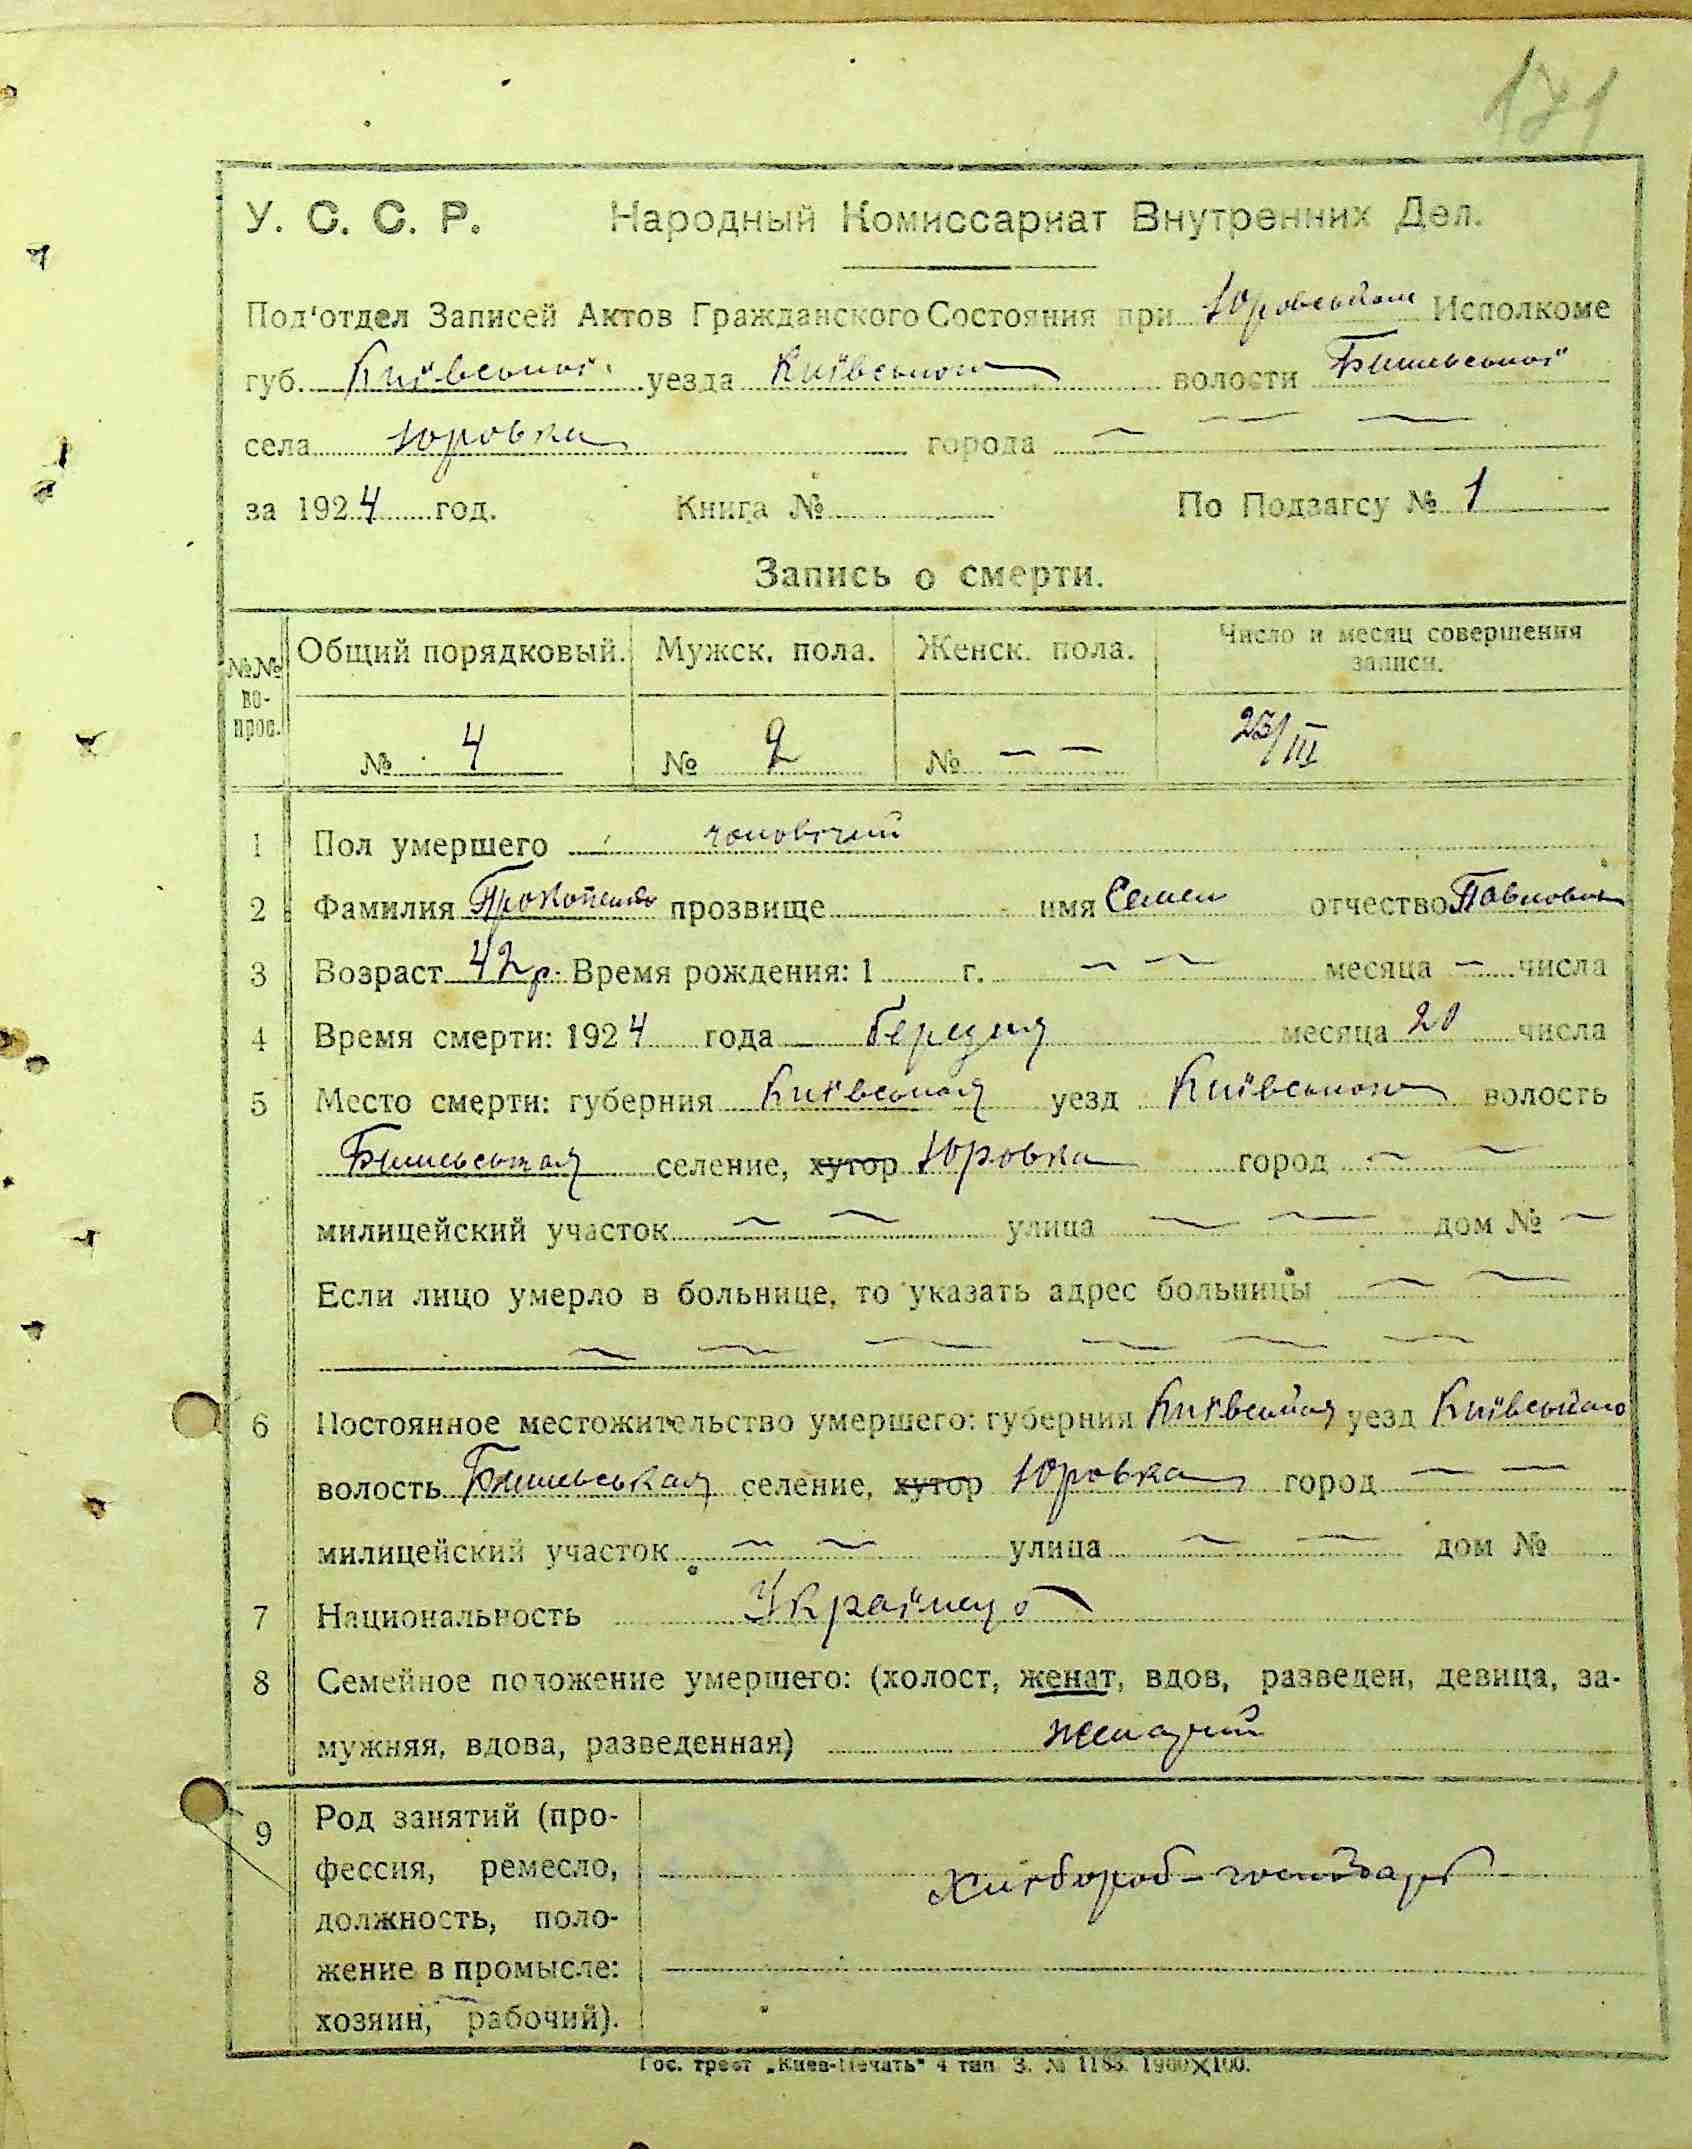 171
У. С. С. Р. Народный Комиссариат Внутренних Дел.
Под'отдел Записей Актов Гражданского Состояния при Юровським Исполкоме
губ. Київської уезда Київського волости Бишівської
села Юровки города — — —
за 1924 год. Книга № По Подзагсу № 1
Запись о смерти.
№№ во-прос. Общий порядковый. Мужск. пола. Женск. пола. Число и месяц совершения записи.
№ 4 № 2 № — — 23/III
1 Пол умершего чоловічий
2 Фамилия Прокопенко прозвище имя Семен отчество Павлович
3 Возраст 42 р. Время рождения: 1 г. — — месяца — числа
4 Время смерти: 1924 года березня месяца 20 числа
5 Место смерти: губерния Київська уезд Київського волость
селение, хутор Юровка город — —
милицейский участок — — улица — — дом № —
Если лицо умерло в больнице, то указать адрес больницы — —
— — — — — —
6 Постоянное местожительство умершего: губерния Київська уезд Київського
волость селение, хутор Юровка город — —
милицейский участок — — улица — — дом №
7 Национальность
8 Семейное положение умершего: (холост, женат, вдов, разведен, девица, за-
мужняя, вдова, разведенная) женатий
9 Род занятий (про-
фессия, ремесло, Хлібороб - господарь
должность, поло-
жение в промысле:
хозяин, рабочий).
Гос. трест „Киев-Печать" 4 тип. З. № 1185. 1960×100.